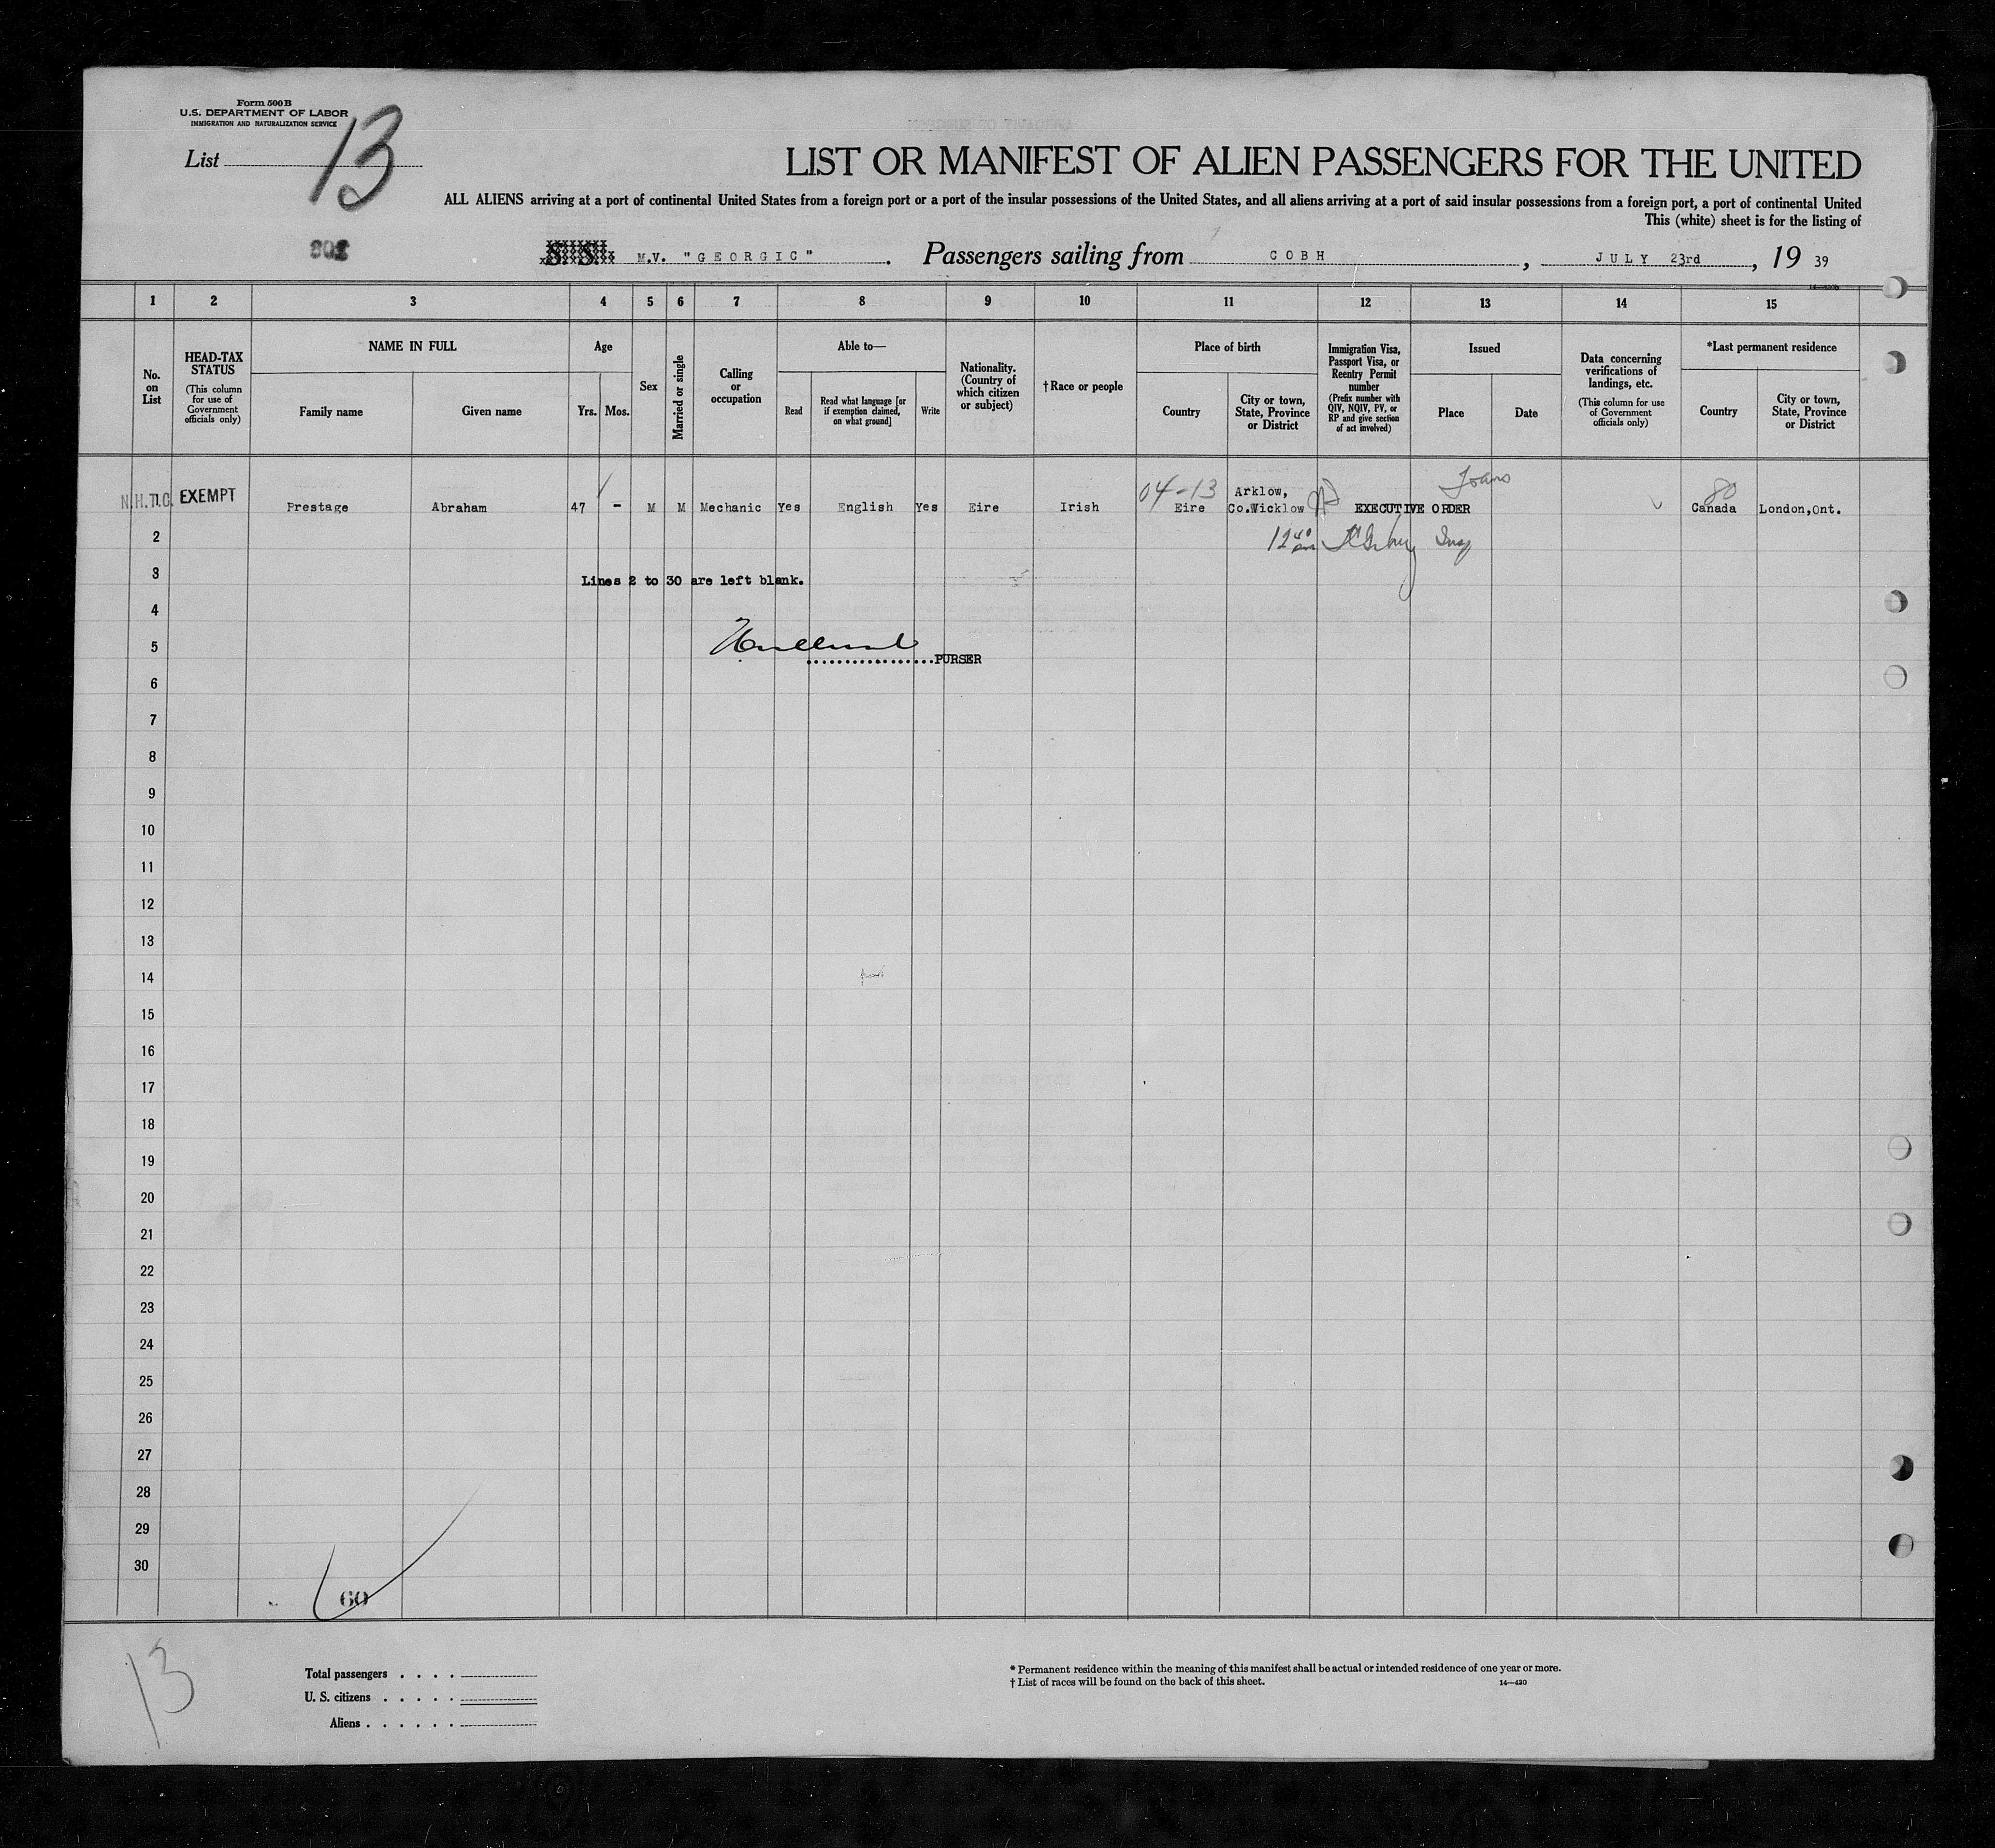 Form 500 B
U.S. DEPARTMENT OF LABOR
IMMIGRATION AND NATURALIZATION SERVICE
List 13
LIST OR MANIFEST OF ALIEN PASSENGERS FOR THE UNITED
ALL ALIENS arriving at a port of continental United States from a foreign port or a port of the insular possessions of the United States, and all aliens arriving at a port of said insular possessions from a foreign port, a port of continental United
This (white) sheet is for the listing of
S. S. M.V. "GEORGIC" . Passengers sailing from COBH , JULY 23rd , 19 39
1 2 3 4 5 6 7 8 9 10 11 12 13 14 15
No. on List
HEAD-TAX STATUS (This column for use of Government officials only)
NAME IN FULL
Family name
Given name
Age
Yrs. Mos.
Sex
Married or single
Calling or occupation
Able to—
Read
Read what language [or if exemption claimed, on what ground]
Write
Nationality. (Country of which citizen or subject)
†Race or people
Place of birth
Country
City or town, State, Province or District
Immigration Visa, Passport Visa, or Reentry Permit number (Prefix number with QIV, NQIV, PV, or RP and give section of act involved)
Issued
Place
Date
Data concerning verifications of landings, etc. (This column for use of Government officials only)
*Last permanent residence
Country
City or town, State, Province or District
EXEMPT Prestage Abraham 47 - M M Mechanic Yes English Yes Eire Irish 04-13 Eire Arklow, Co.Wicklow EXECUTIVE ORDER 80 Canada London,Ont.
2
3 Lines 2 to 30 are left blank.
4
5
PURSER
6
7
8
9
10
11
12
13
14
15
16
17
18
19
20
21
22
23
24
25
26
27
28
29
30
60
13
Total passengers . . . .
U. S. citizens . . . . .
Aliens . . . . . .
* Permanent residence within the meaning of this manifest shall be actual or intended residence of one year or more.
† List of races will be found on the back of this sheet.
14—430